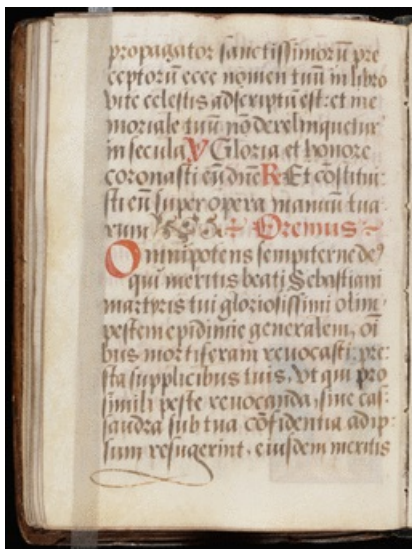 propagator sanctissimorū pre
ceptorū ecce nomen tuū in libro
vite celestis adscriptū est: et me
moriale tuū nō derelinquetur
in secula V Gloria et honore
coronasti eū dñe R Et cōstitui
sti eū super opera manuū tua
rum Oremus
Omnipotens sempiterne de9
qui meritis beati Sebastiani
martyris tui gloriosissimi olim
pestem epidimie generalem, oī
bus mortiferam reuocasti: pre
sta supplicibus tuis, vt qui pro
simili peste reuocanda, siue cas
sandra sub tua cōfidentia adip
sum refugerint, eiusdem meritis